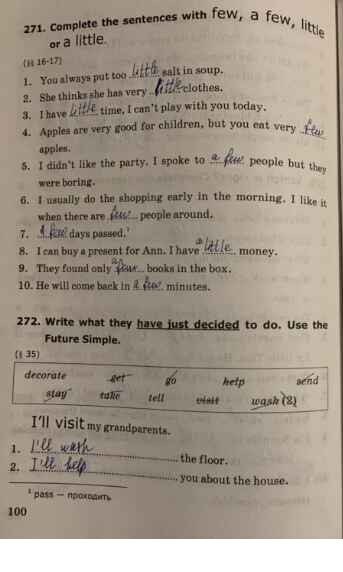 271. Complete the sentences with few, a few, little
or a little.
(§§ 16-17)
1. You always put too little salt in soup.
2. She thinks she has very little clothes.
3. I have little time, I can't play with you today.
4. Apples are very good for children, but you eat very few
apples.
5. I didn't like the party. I spoke to a few people but they
were boring.
6. I usually do the shopping early in the morning. I like it
when there are few people around.
7. A few days passed.¹
8. I can buy a present for Ann. I have a little money.
9. They found only a few books in the box.
10. He will come back in a few minutes.
272. Write what they have just decided to do. Use the
Future Simple.
(§ 35)
decorate get go help send
stay take tell visit wash (2)
I'll visit my grandparents.
1. I'll wash the floor.
2. I'll help you about the house.
¹ pass — проходить
100